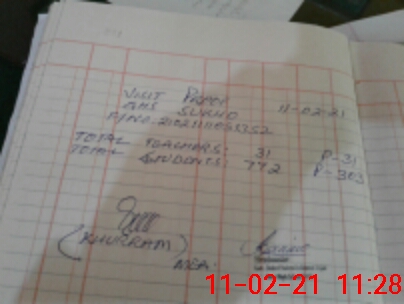 VISIT PROOF
GHS SUKHO 11-02-21
TOTAL TEACHERS: 31 P-31
TOTAL STUDENTS: 772 P-303
(KHURRAM)
MEA.
11-02-21 11:28